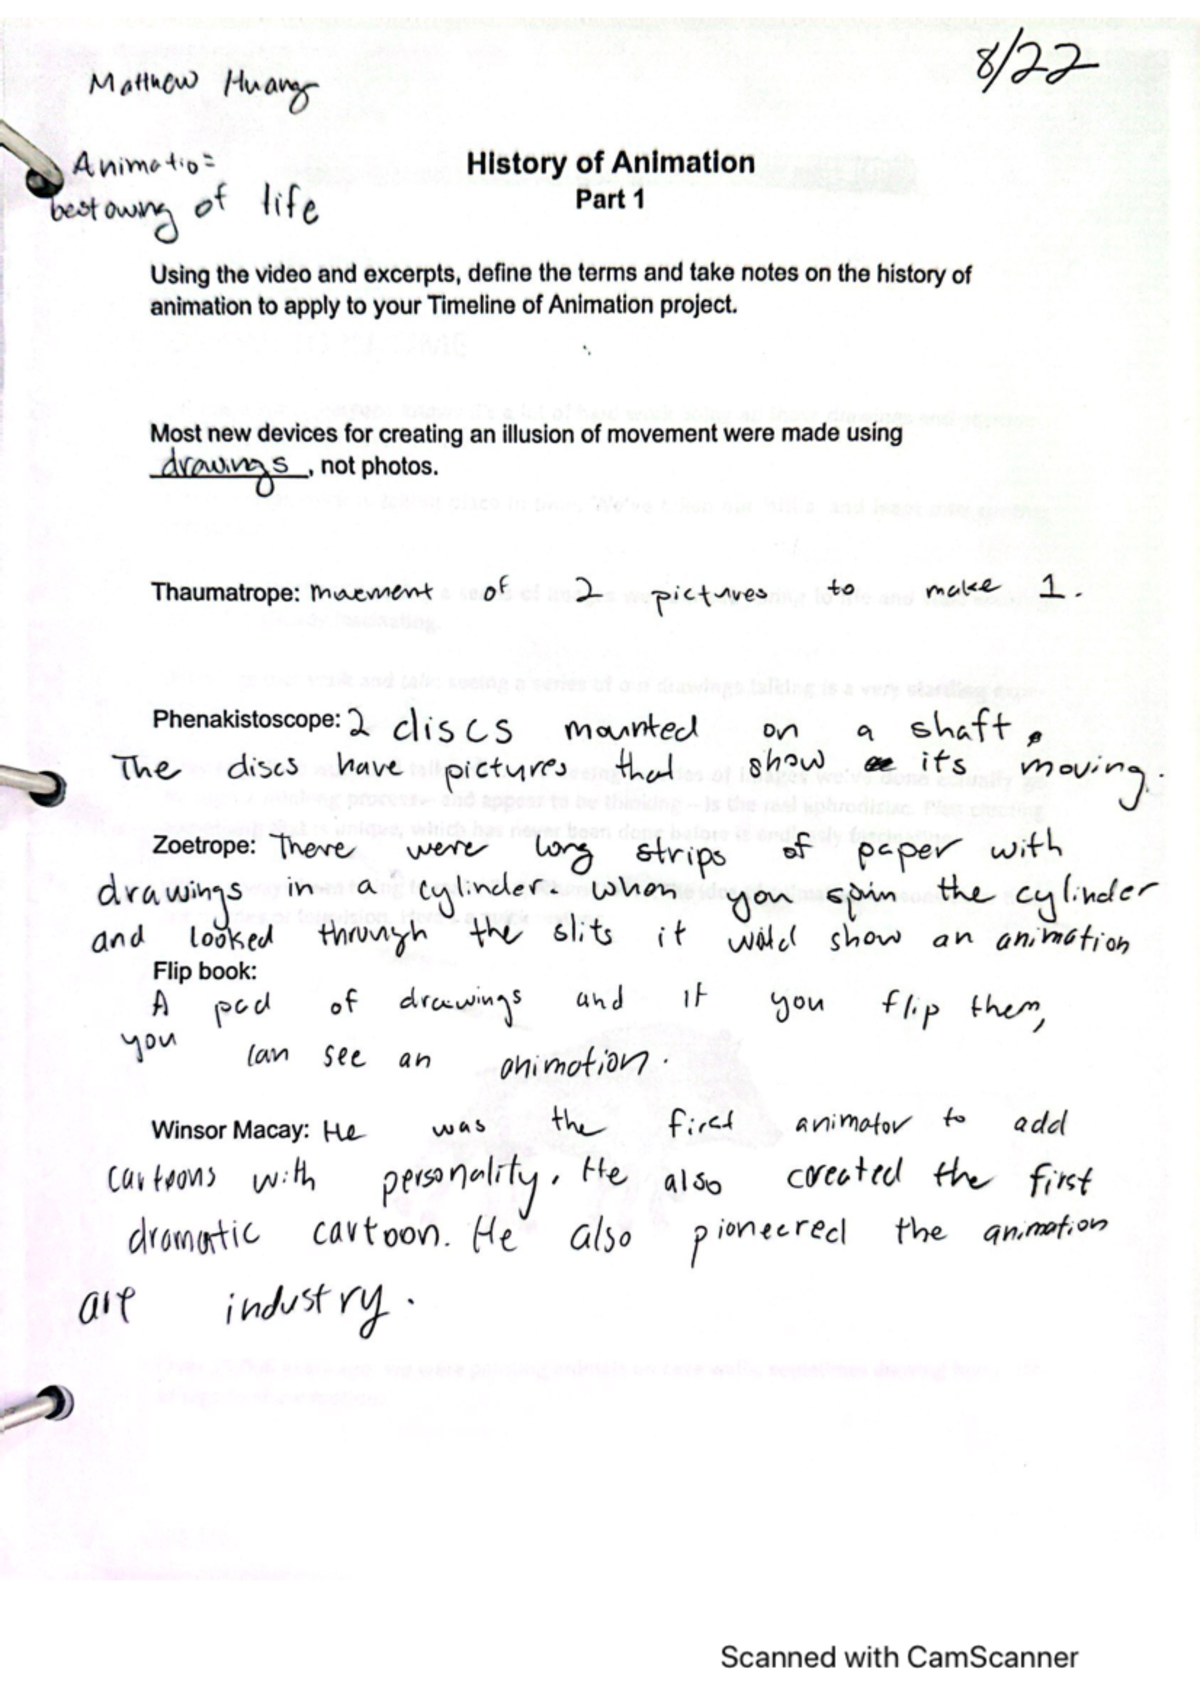 Matthew Huang
8/22
Animatio=
bestowing of life
History of Animation
Part 1
Using the video and excerpts, define the terms and take notes on the history of
animation to apply to your Timeline of Animation project.
Most new devices for creating an illusion of movement were made using
drawings, not photos.
Thaumatrope: of 2 pictures to make 1.
Phenakistoscope: 2 discs mounted on a shaft.
The discs have pictures that show its moving.
Zoetrope: There were long strips of paper with
drawings in a cylinder. When you spin the cylinder
and looked through the slits it would show an animation
Flip book:
A pad of drawings and if you flip them,
you can see an animation.
Winsor Macay: He was the first animator to add
cartoons with personality. He also created the first
dramatic cartoon. He also pioneered the animation
art industry.
Scanned with CamScanner